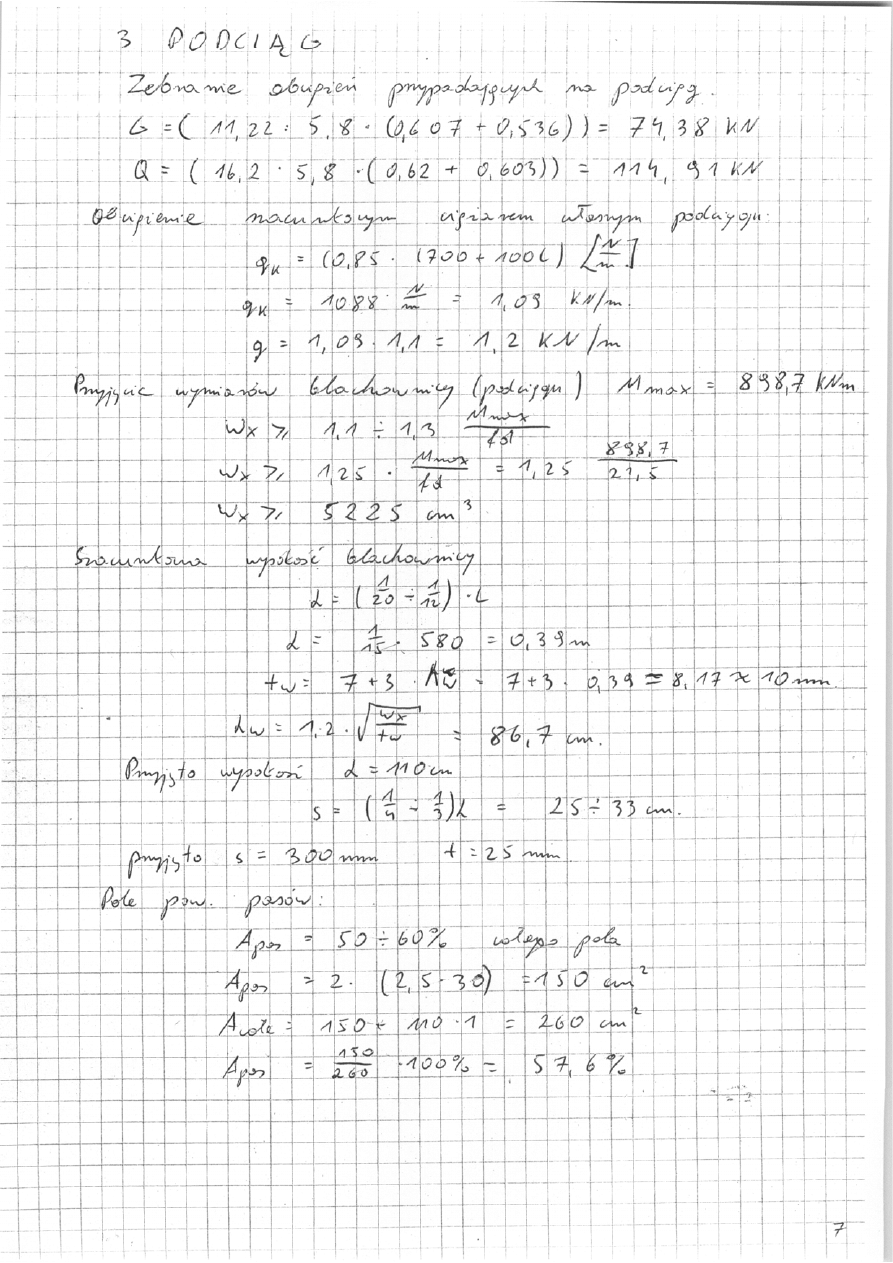 3 PODCIĄG
Zebranie obciążeń przypadających na podciąg.
G = ( 11,22 · 5,8 · (0,607 + 0,536)) = 74,38 KN
Q = ( 16,2 · 5,8 · ( 0,62 + 0,603)) = 114,91 KN
Obciążenie szacunkowym ciężarem własnym podciągu:
qk = (0,85 · (700 + 100L) [N/m]
qk = 1088 N/m = 1,09 KN/m.
q = 1,09 · 1,1 = 1,2 KN/m
Przyjęcie wymiarów blachownicy (podciągu) Mmax = 898,7 kNm
Wx ≥ 1,1 ÷ 1,3 Mmax/fd
Wx ≥ 1,25 · Mmax/fd = 1,25 898,7/21,5
Wx ≥ 5225 cm³
Szacunkowa wysokość blachownicy
h = (1/20 ÷ 1/12) · L
h = 1/15 · 580 = 0,39 m
tw = 7 + 3 · hw = 7 + 3 · 0,39 = 8,17 ≈ 10 mm.
hw = 1,2 · √(Wx/tw) = 86,7 cm.
Przyjęto wysokość h = 110 cm
s = (1/4 ÷ 1/3)h = 25 ÷ 33 cm.
przyjęto s = 300 mm t = 25 mm
Pole pow. pasów:
Apas = 50 ÷ 60% całego pola
Apas = 2 · (2,5 · 30) = 150 cm²
Acałe = 150 + 110 · 1 = 260 cm²
Apas = 150/260 · 100% = 57,6%
7